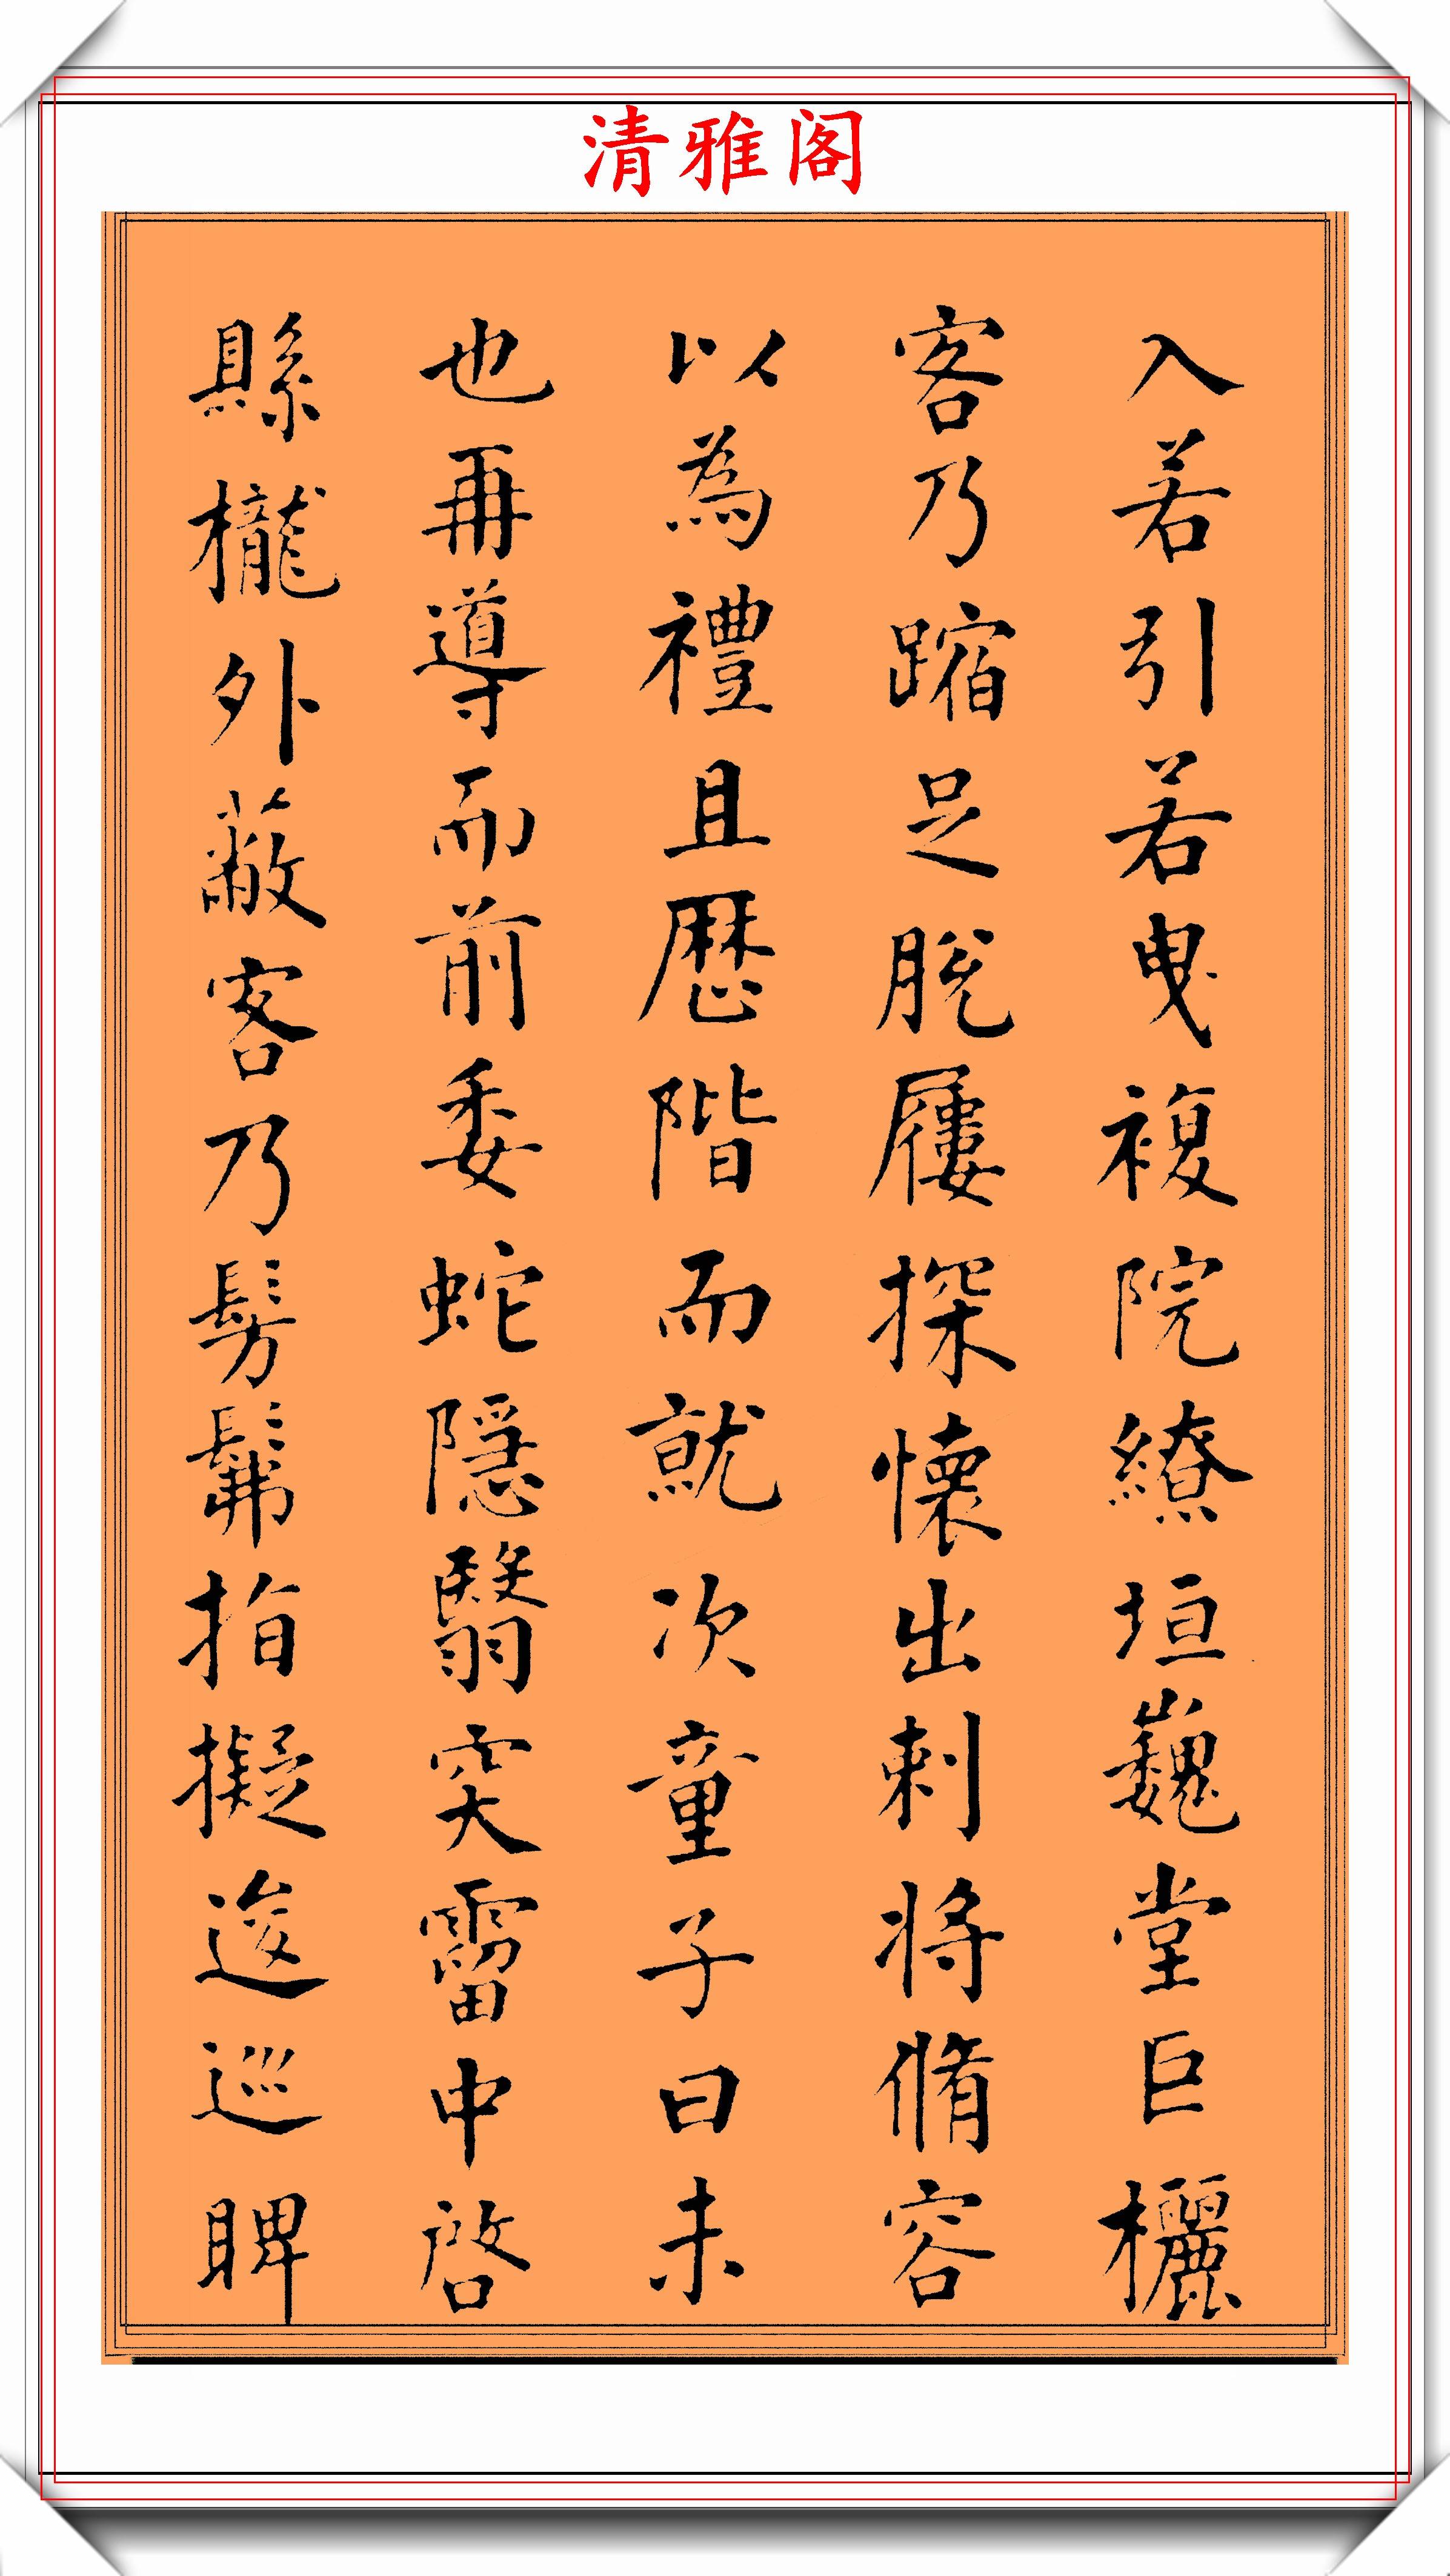 清雅阁
入若引若曳複院繚垣巍堂巨欐
客乃蹜足脫屨探懷出刺将脩容
以為禮且歷階而就次童子曰未
也再導而前委蛇隱翳突霤中啓
縣櫳外蔽客乃髣髴指擬逡巡睥